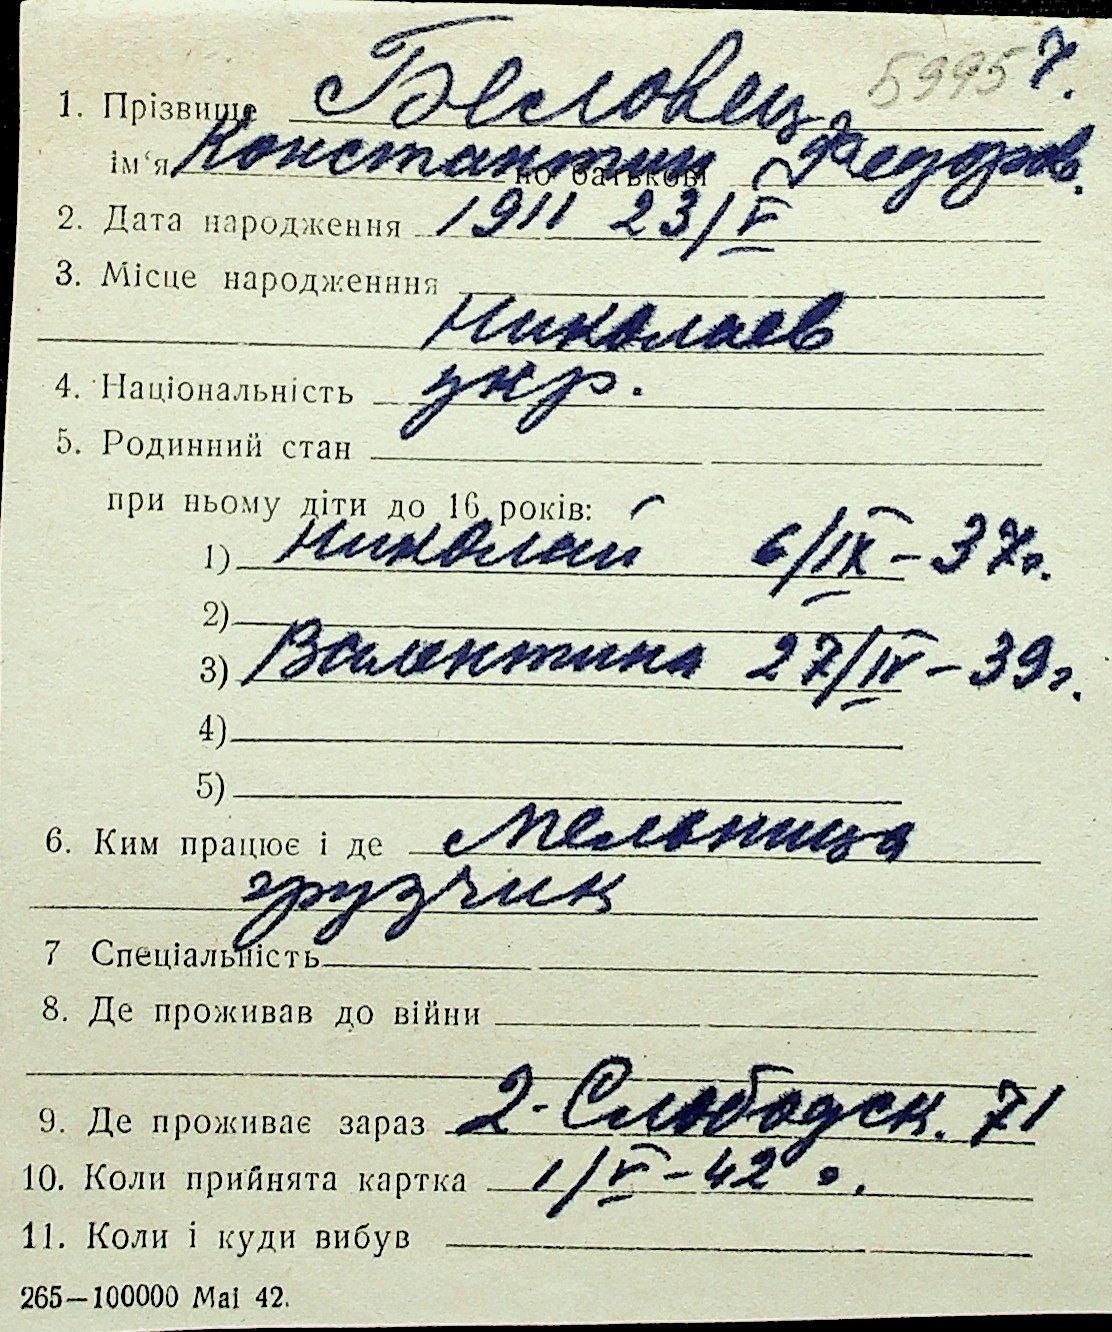 5995 7.
1. Прізвище Беловец
ім‘я Константин по батькові Федоров.
2. Дата народження 1911 23/V
3. Місце народженння
Николаев
4. Національність укр.
5. Родинний стан
при ньому діти до 16 років:
1) Николай 6/IX – 37г.
2)
3) Валентина 27/IV – 39г.
4)
5)
6. Ким працює і де мельница
грузчик
7 Спеціальність
8. Де проживав до війни
9. Де проживає зараз 2-Слободск. 71
10. Коли прийнята картка 1/V – 42 г.
11. Коли і куди вибув
265—100000 Mai 42.